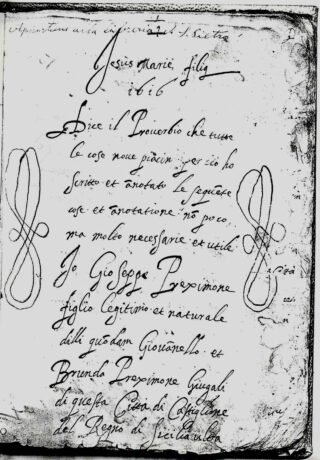 Jesus Marie filij
1616
Dice il Proverbio che tutte
le cose nove piacin perciò ho
scritto et annotato le sequete
cose et annotatione nō poco
ma molto necessarie et utile
Jo Gioseppe Preximone
figlio legitimo et naturale
dilli quōdam Giovānello et
Brunda Preximone Giugali
di questa Citta di Castiglione
del Regno di Sicilia ultra